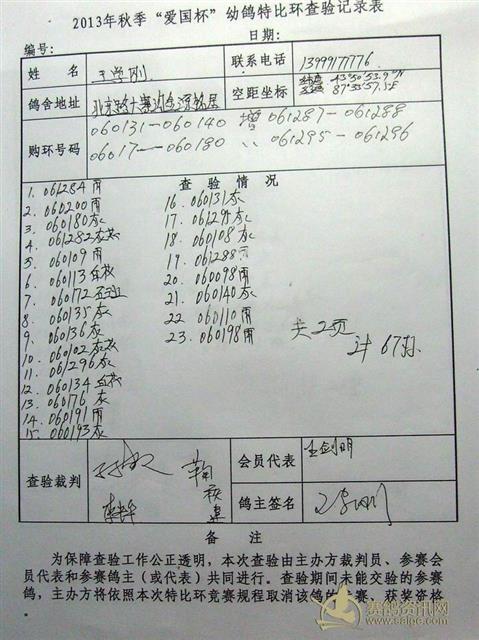 2013年秋季“爱国杯”幼鸽特比环查验记录表
编号: 日期:
姓名 王学刚 联系电话 13999177776
鸽舍地址 空距坐标 43°50′53.9″N
87°35′57.5″E
购环号码 060131—060140 增 061287—061288
06017—060180 〃 061295—061296
查验情况
1. 061284 雨 16. 060131 灰
2. 060200 雨 17. 061294 灰
3. 060180 灰 18. 060108 灰
4. 061282 19. 061288 雨
5. 060109 雨 20. 060098 雨
6. 060113 21. 060140 灰
7. 060172 22. 060110 雨
8. 060135 灰 23. 060198 雨 共2页
9. 060136 灰 计67羽
10. 060102
11. 061296
12. 060134
13. 060176 灰
14. 060191 雨
15. 060193 灰
查验裁判 会员代表 王剑明
鸽主签名 王学刚
备注
为保障查验工作公正透明，本次查验由主办方裁判员、参赛会
员代表和参赛鸽主（或代表）共同进行。查验期间未能交验的参赛
鸽，主办方将依照本次特比环竞赛规程取消该鸽的参赛、获奖资格
赛鸽资讯网
www.saige.com